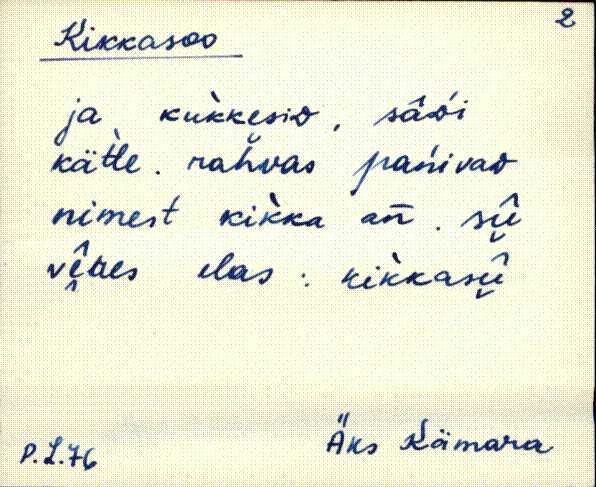 2
Kikkasoo
ja kuk̀kesiᴅ, sâᴅ́i
kät̀te. rah̬vas pań́ivaᴅ
nimest kik̀ka an̄. sṷ̂
vê̬ttes elas : kik̀kasṷ̂
P.L.76
Äks Kämara